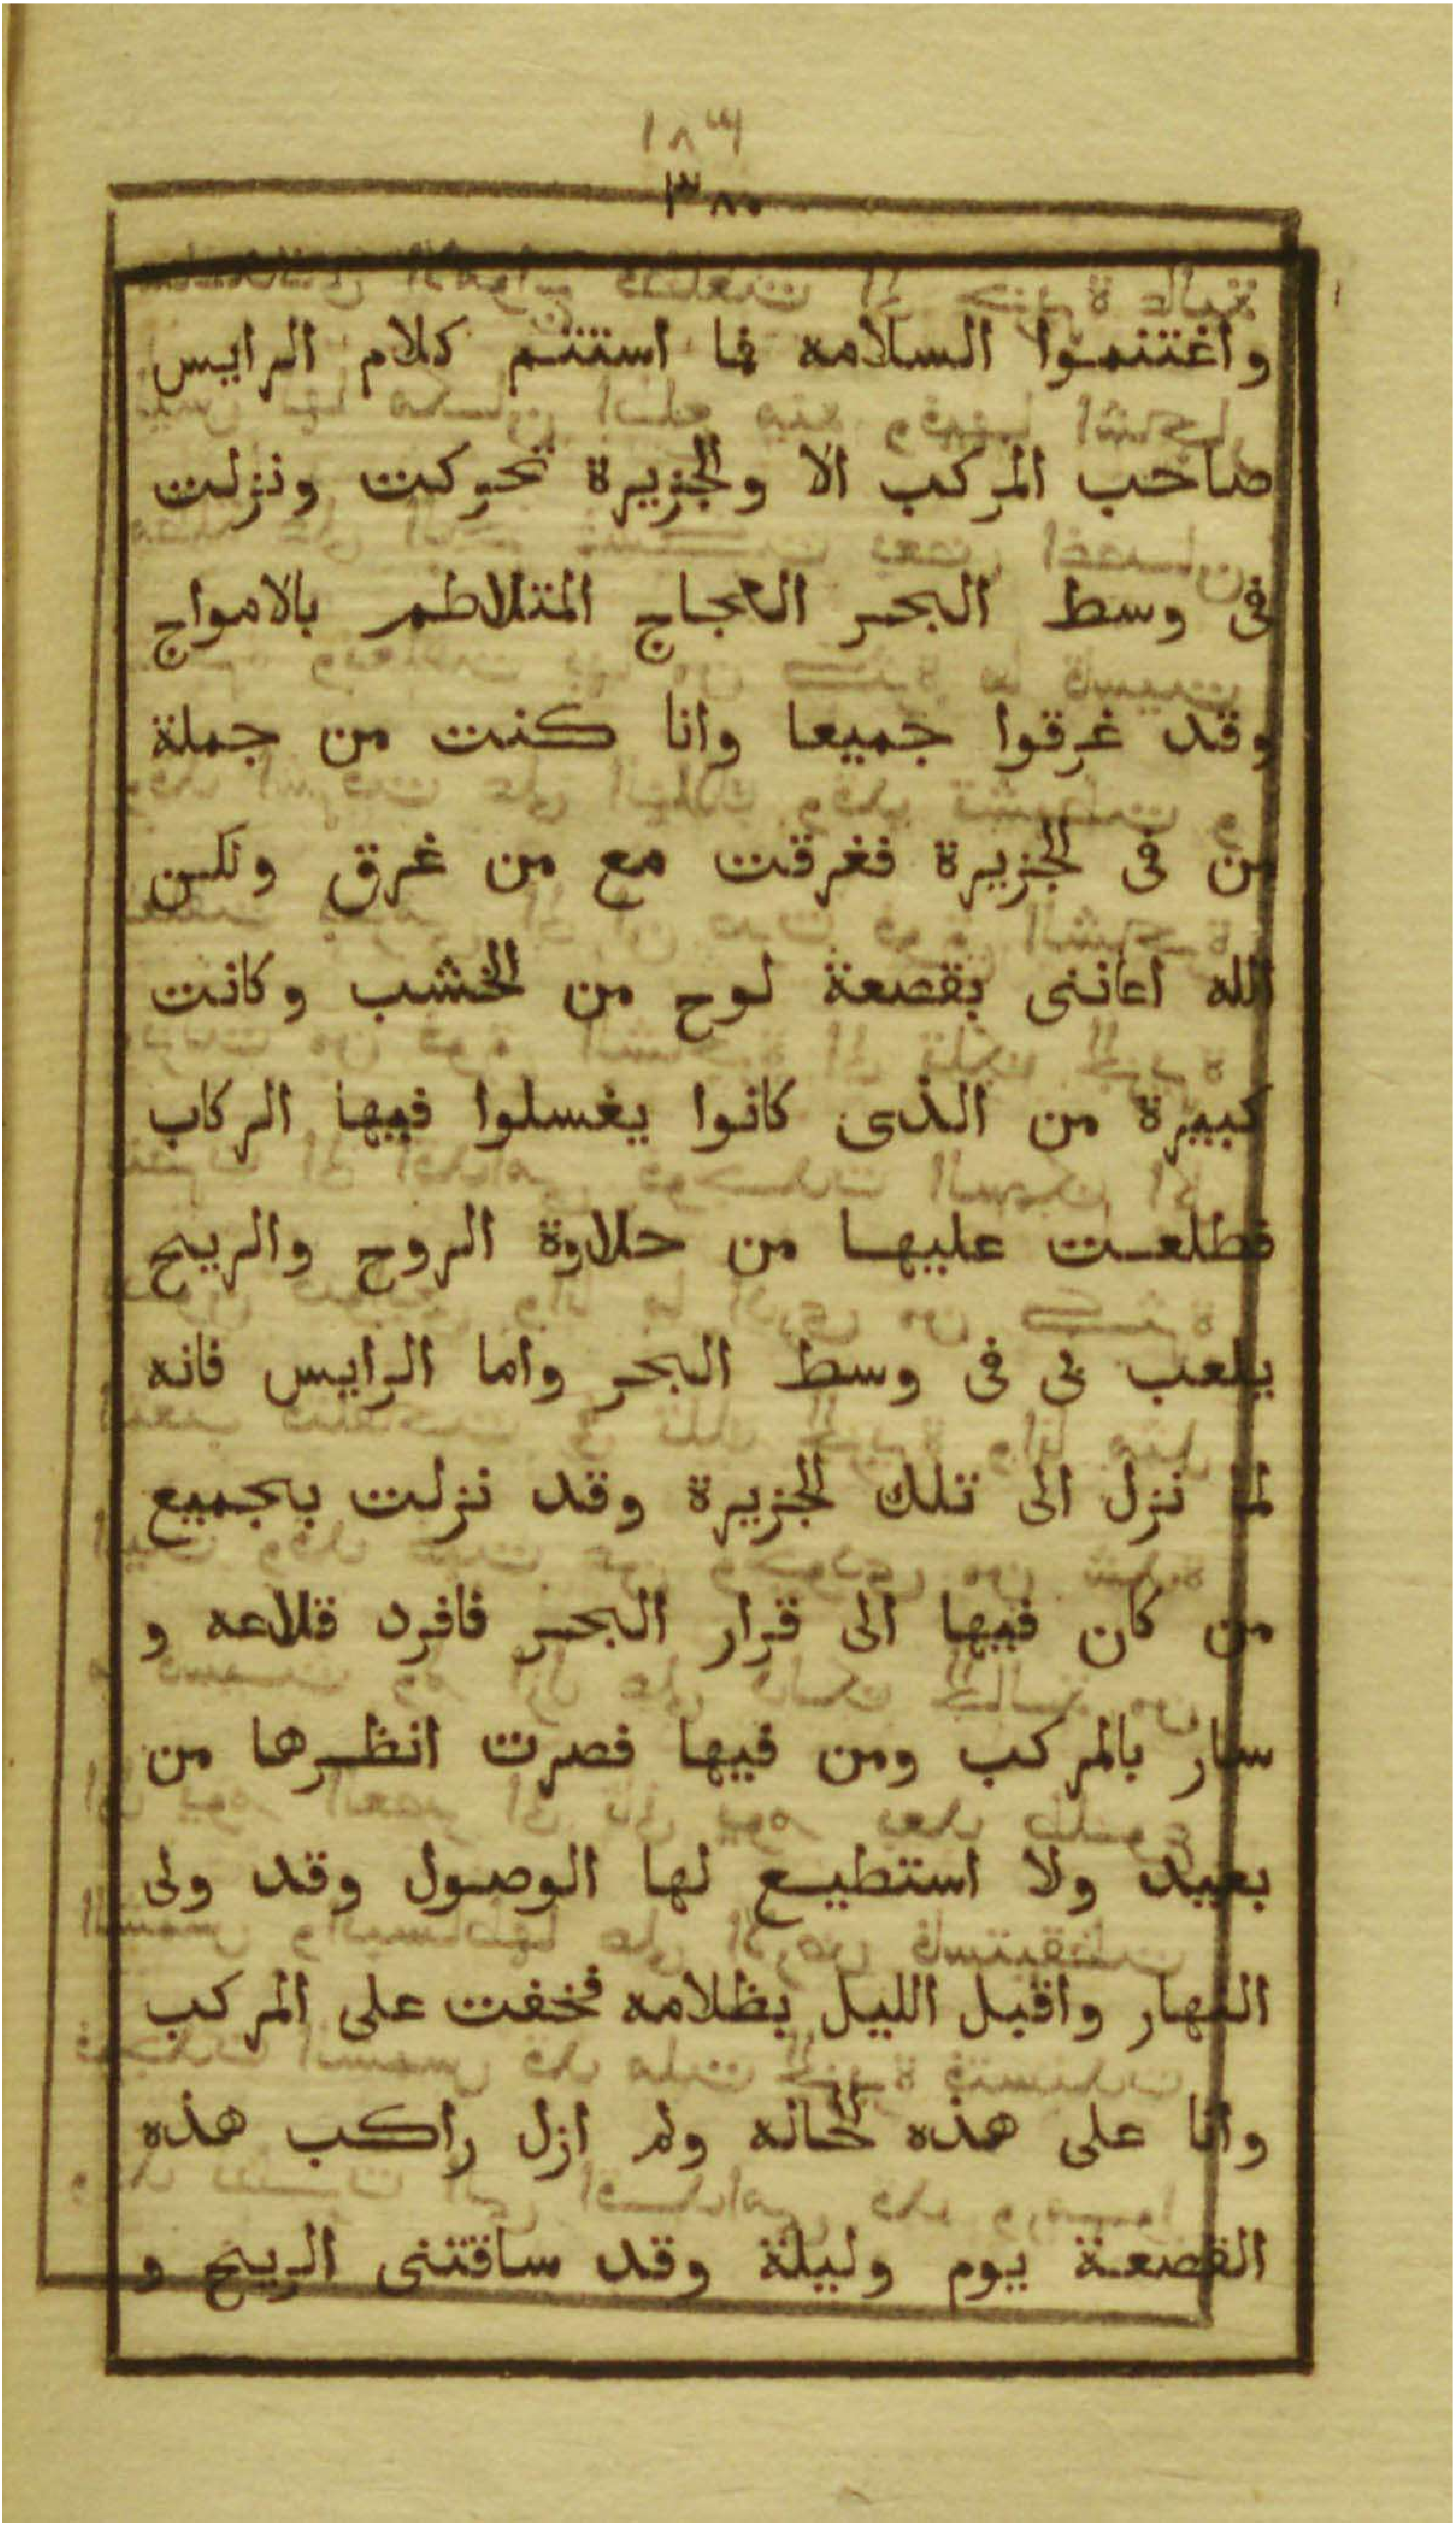 ١٨٣
٣٨٠
واغتنموا السلامه فما استتم كلام الرايس
صاحب المركب الا والجزيرة تحركت ونزلت
فى وسط البحر العجاج المتلاطم بالامواج
وقد غرقوا جميعا وانا كنت من جملة
من فى الجزيرة فغرقت مع من غرق ولكن
الله اعاننى بقصعة لوح من الخشب وكانت
كبيرة من الذى كانوا يغسلوا فيها الركاب
فطلعت عليها من حلاوة الروح والريح
يلعب بى فى وسط البحر واما الرايس فانه
لما نزل الى تلك الجزيرة وقد نزلت بجميع
من كان فيها الى قرار البحر فافرد قلاعه و
سار بالمركب ومن فيها فصرت انظرها من
بعيد ولا استطيع لها الوصول وقد ولى
النهار واقبل الليل بظلامه فخفت على المركب
وانا على هذه الحاله ولم ازل راكب هذه
القصعة يوم وليلة وقد ساقتنى الريح و